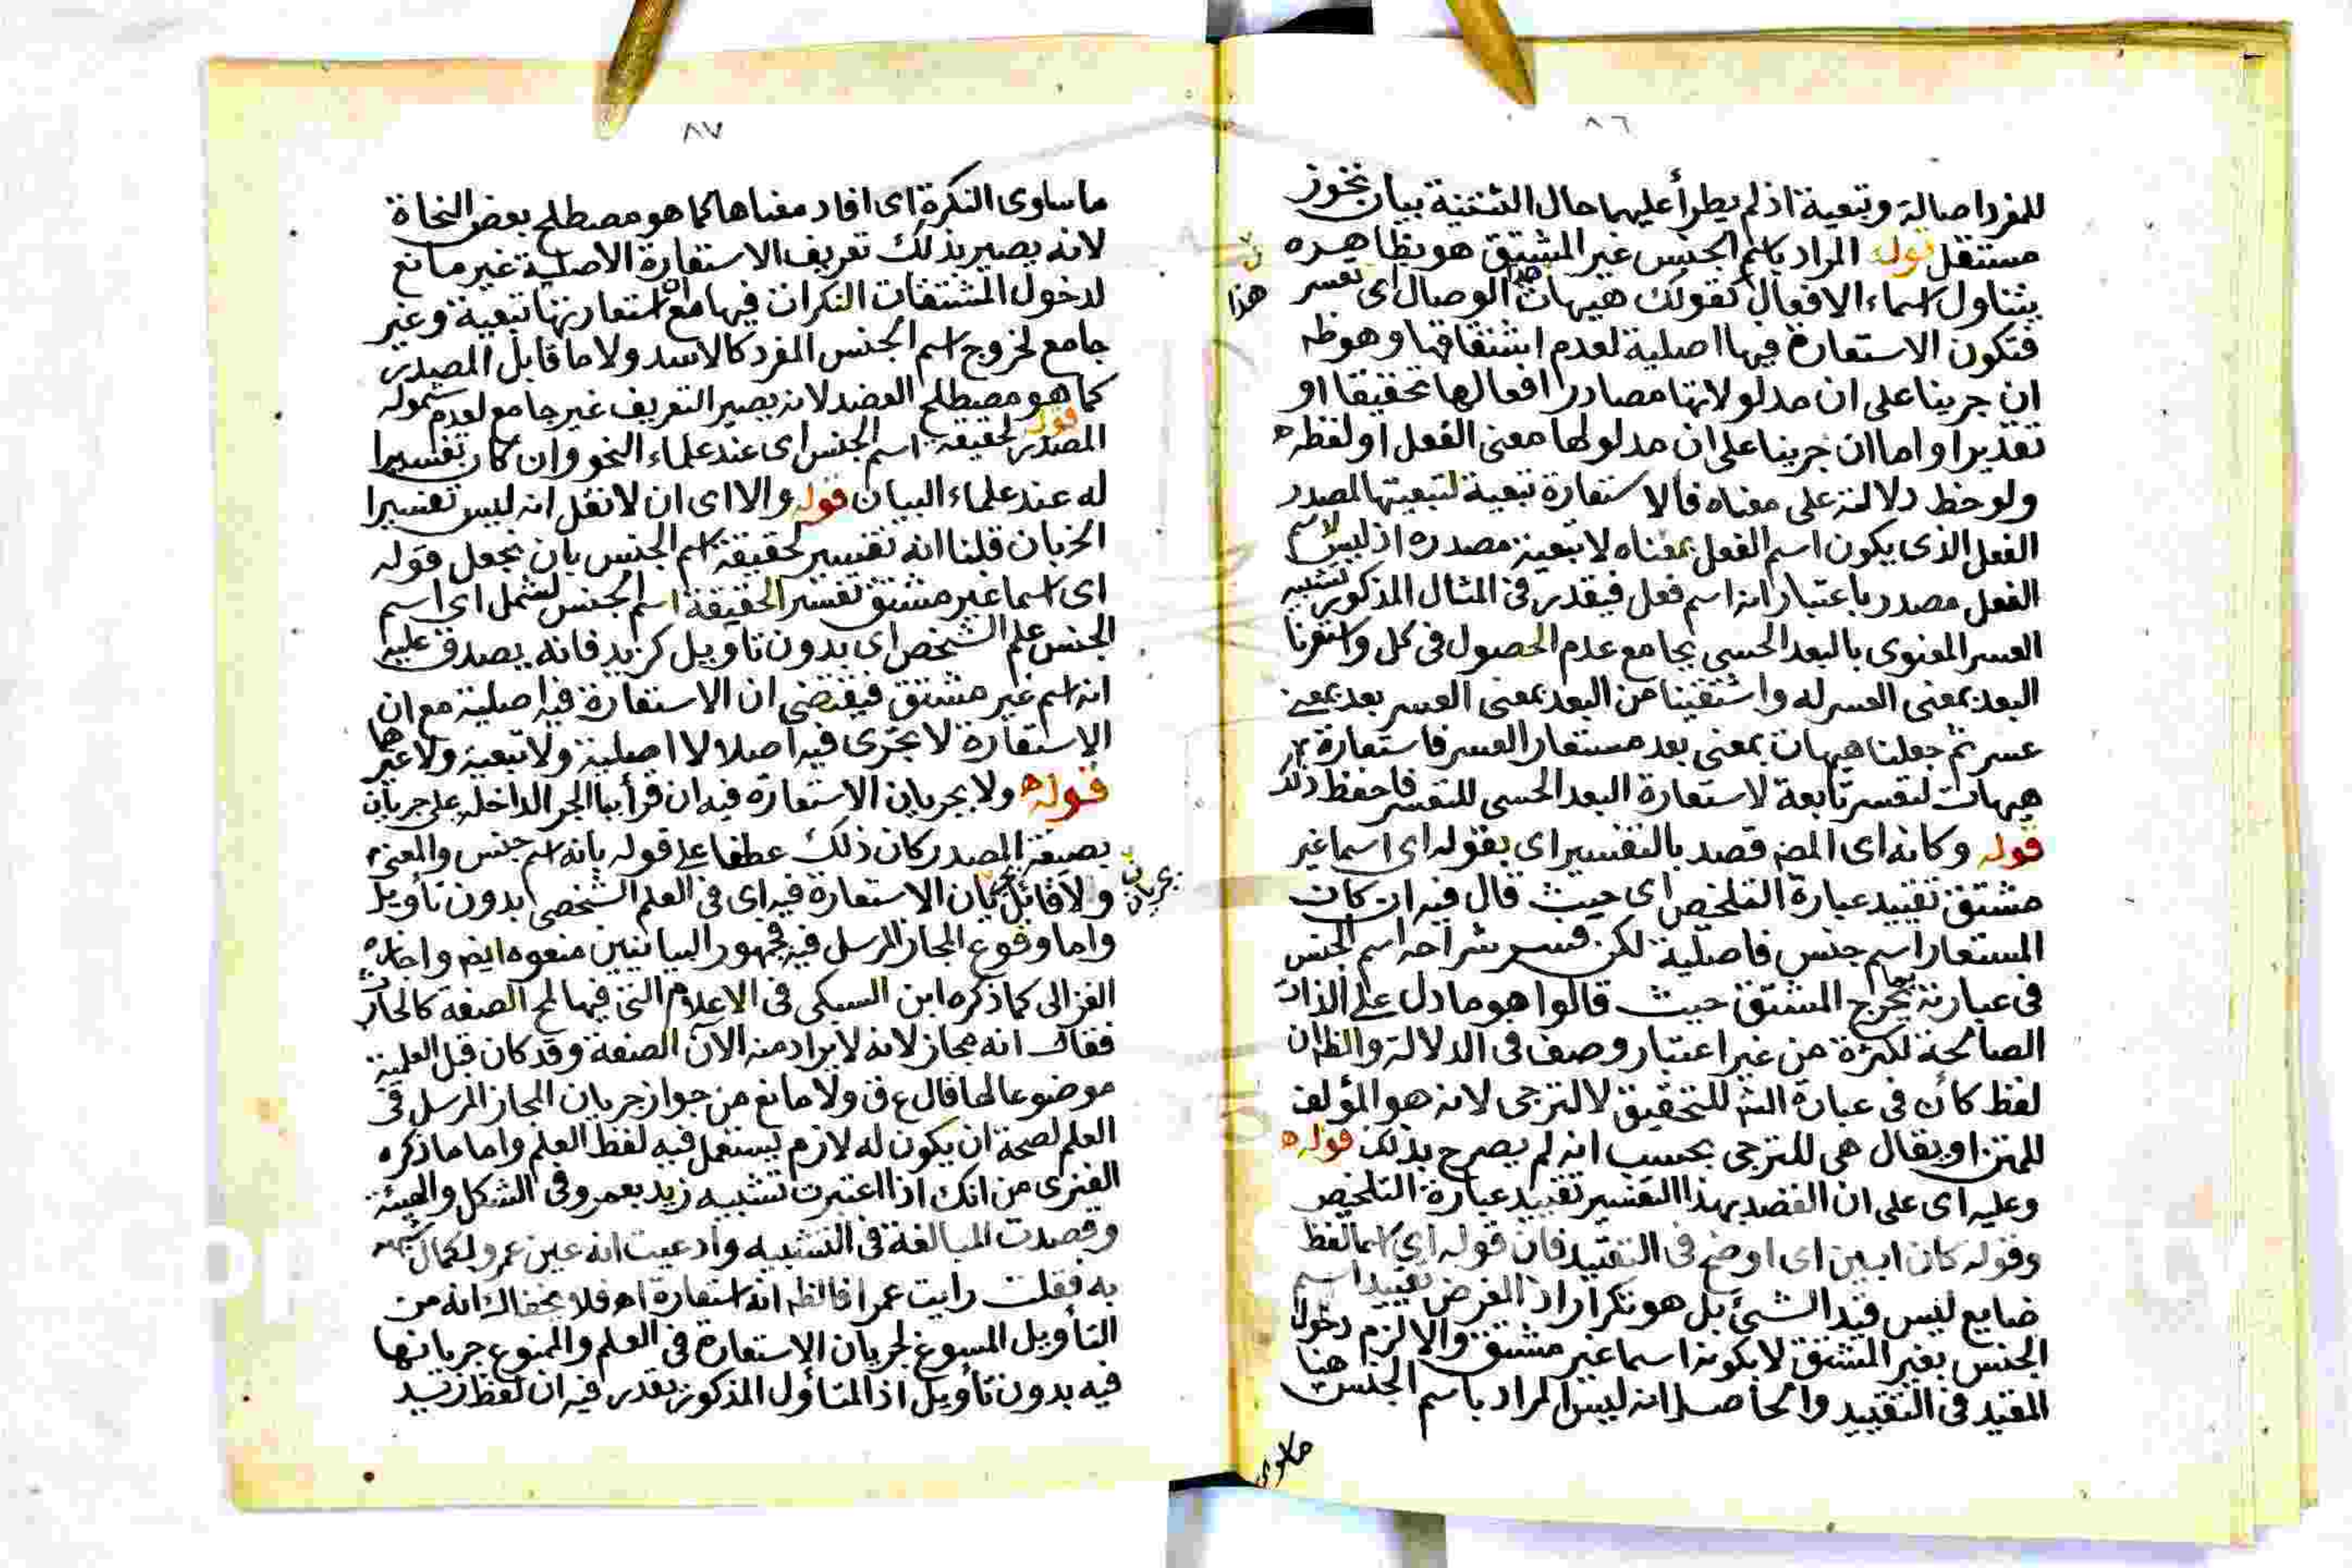 ٨٦
للمفرد اصالة وتبعية اذ لم يطرأ عليهما حال التثنية بيان تجوز
مستقل قوله المراد باسم الجنس غير المشتق هو بظاهره
يتناول اسماء الافعال كقولك هيهات الوصال اى تعسر
هذا
فتكون الاستعارة فيها اصلية لعدم اشتقاقها وهو ظه
ان جرينا على ان مدلولاتها مصادر افعالها تحقيقا او
تقديرا واما ان جرينا على ان مدلولها معنى الفعل او لفظه
ولوحظ دلالته على معناه فالاستعارة تبعية لتبعيتها لمصدر
الفعل الذى يكون اسم الفعل بمعناه لا تبعية مصدره اذ ليس لاسم
الفعل مصدر باعتبار انه اسم فعل فيقدر فى المثال المذكور تشبيه
العسر المعنوى بالبعد الحسى بجامع عدم الحصول فى كل واستعرنا
البعد بمعنى العسر له واشتقينا من البعد بمعنى العسر بعد بمعنى
عسر ثم جعلنا هيهات بمعنى بعد مستعار العسر فاستعارة
هيهات لتعسر تابعة لاستعارة البعد الحسى للتعسر فاحفظ ذلك
قوله وكانه اى المص قصد بالتفسير اى بقوله اى اسما غير
مشتق تقييد عبارة التلخيص اى حيث قال فيه ان كان
المستعار اسم جنس فاصلية لكن فسر شراحه اسم الجنس
فى عبارته بما يخرج المشتق حيث قالوا هو ما دل على الذات
الصالحة لكثرة من غير اعتبار وصف فى الدلالة والظ ان
لفظ كأن فى عبارة الش للتحقيق لا للترجى لانه هو المؤلف
للمتن او يقال هى للترجى بحسب انه لم يصرح بذلك قوله
وعليه اى على ان القصد بهذا التفسير تقييد عبارة التلخيص
وقوله كان ابين اى اوضح فى التقييد فان قوله اى اسما لفظ
ضايع ليس قيد الشئ بل هو تكرار اذ الغرض تقييد اسم
الجنس بغير المشتق لا بكونه اسما غير مشتق والا لزم دخول
المقيد فى التقييد والحاصل انه ليس المراد باسم الجنس هنا
٨٧
ما ساوى النكرة اى افاد معناها كما هو مصطلح بعض النحاة
لانه يصير بذلك تعريف الاستعارة الاصلية غير مانع
لدخول المشتقات النكرات فيها مع ان استعارتها تبعية وغير
جامع لخروج اسم الجنس المفرد كالاسد ولا ما قابل المصدر
كما هو مصطلح العضد لانه يصير التعريف غير جامع لعدم شموله
المصدر قوله لحقيقة اسم الجنس اى عند علماء النحو وان كان تفسيرا
له عند علماء البيان قوله والا اى ان لا نقل انه ليس تفسيرا
الخ بان قلنا انه تفسير لحقيقة اسم الجنس بان نجعل قوله
اى اسما غير مشتق تفسير الحقيقة اسم الجنس لشمل اى اسم
الجنس علم الشخص اى بدون تاويل كزيد فانه يصدق عليه
انه اسم غير مشتق فيقتضى ان الاستعارة فيه اصلية مع ان
الاستعارة لا تجرى فيه اصلا لا اصلية ولا تبعية ولا غيرهما
قوله ولا بجريان الاستعارة فيه ان قرأ بباء الجر الداخله على جريان
بصيغة المصدر كان ذلك عطفا على قوله بانه اسم جنس والمعنى
ولا قائل بجريان الاستعارة فيه اى فى العلم الشخصى بدون تأويل
بجريان
واما وقوع المجاز المرسل فيه فجمهور البيانيين منعوه ايض واجازه
الغزالى كما ذكره ابن السبكى فى الاعلام التى فيها لمح الصفة كالحارث
فقال انه مجاز لانه لا يراد منه الآن الصفة وقد كان قبل العلمية
موضوعا لها قال ع ق ولا مانع من جواز جريان المجاز المرسل فى
العلم لصحة ان يكون له لازم يستعمل فيه لفظ العلم واما ما ذكره
الفنرى من انك اذا اعتبرت تشبيه زيد بعمرو فى الشكل والهيئة
وقصدت المبالغة فى التشبيه وادعيت انه عين عمرو لكمال شبهه
به فقلت رايت عمرا فالظ انه استعارة اه فلا يخفاك انه من
التأويل المسوغ لجريان الاستعارة فى العلم والممنوع جريانها
فيه بدون تأويل اذ المتأول المذكور يقدر فيه ان لفظ زيد